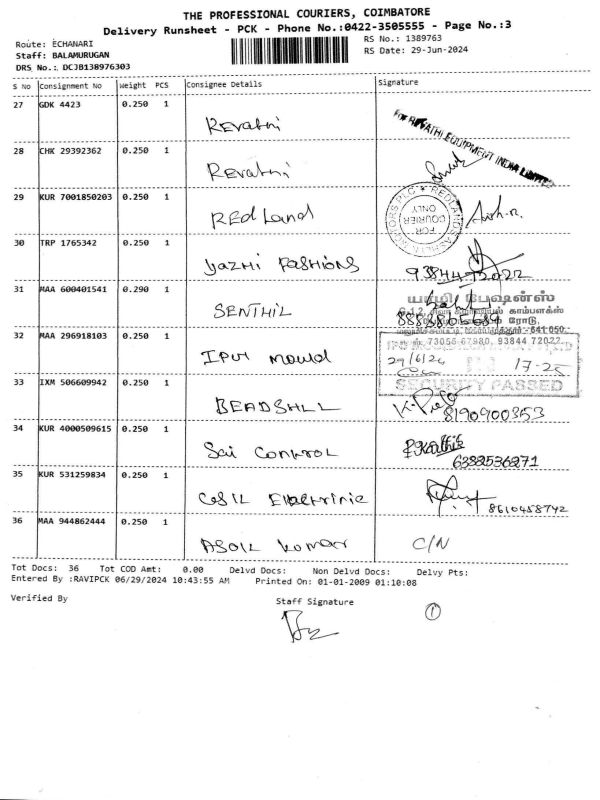 THE PROFESSIONAL COURIERS, COIMBATORE
Delivery Runsheet - PCK - Phone No.:0422-3505555 - Page No.:3
Route: ECHANARI
RS No.: 1389763
Staff: BALAMURUGAN
RS Date: 29-Jun-2024
DRS No.: DCJB138976303
S No Consignment No Weight PCS Consignee Details Signature
27 GDK 4423 0.250 1 Revathi
For REVATHI EQUIPMENT INDIA LIMITED
28 CHK 29392362 0.250 1 Revathi
29 KUR 7001850203 0.250 1 Redland
REDLANDS ASHLYN MOTORS PLC
FOR COURIER ONLY
30 TRP 1765342 0.250 1 Yazhi Fashions
9384472022
31 MAA 600401541 0.290 1 SENTHIL
யாழி பேஷன்ஸ்
காம்பளக்ஸ்
ரோடு,
641 050.
73055 67980, 93844 72022
32 MAA 296918103 0.250 1 Ipui mould
29/6/24 17-25
SECURITY PASSED
33 IXM 506609942 0.250 1 BEADSHLL
8190900353
34 KUR 4000509615 0.250 1 Sai Control
6382536271
35 KUR 531259834 0.250 1
8610458742
36 MAA 944862444 0.250 1 ASOIK Kumar C/N
Tot Docs: 36 Tot COD Amt: 0.00 Delvd Docs: Non Delvd Docs: Delvy Pts:
Entered By :RAVIPCK 06/29/2024 10:43:55 AM Printed On: 01-01-2009 01:10:08
Verified By Staff Signature
1